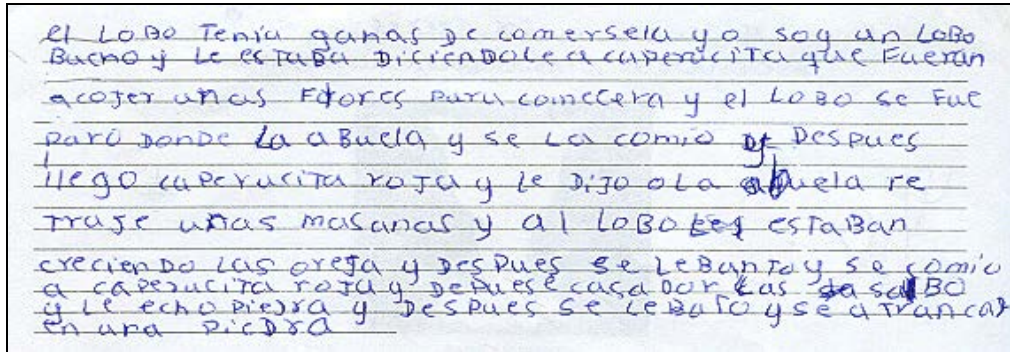 el LoBo Tenia ganas De comersela yo soy un LoBo
Bueno y Le esTaBa DicienDoLe a caperucita que Fueran
a cojer unas Flores para comecera y el LoBo se Fue
para DonDe La aBuela y se La comio De Despues
llego caperucita roja y Le Dijo oLa abuela re
Traje unas masanas y al LoBo Les esTaBan
creciendo Las oreja y Despues se LeBanTa y se comio
a caperucita roja y Depues e casaDor Las salBo
y Le echo pieDra y Despues se LeBaTo y se aTranca
en una pieDra